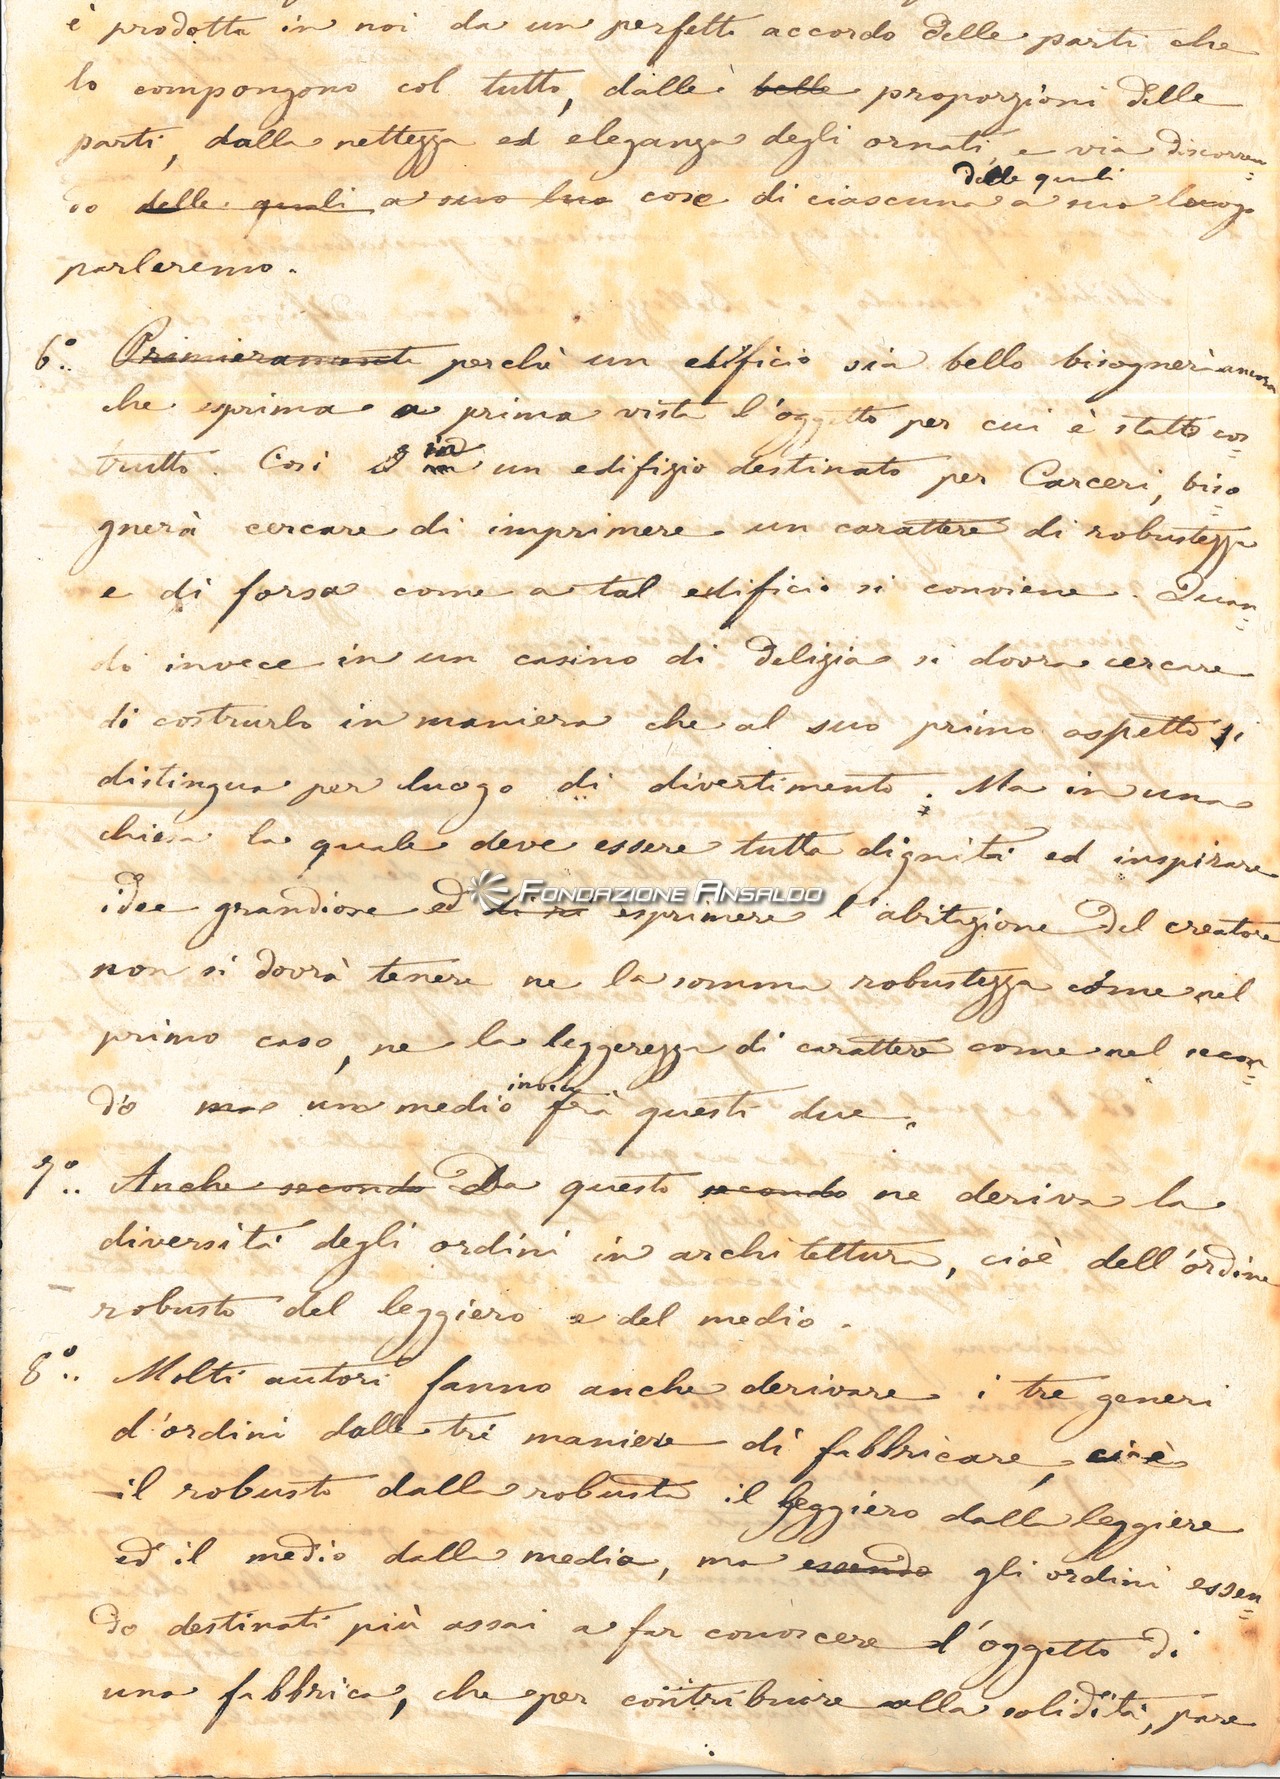 è prodotta in noi da un perfetto accordo delle parti che
lo compongono col tutto, dalle belle proporzioni delle
parti, dalla nettezza ed eleganza degli ornati, e via discorren=
delle quali
do delle quali a suo luo cose di ciascuna a suo luogo
parleremo.
6.° Primieramente perchè un edificio sia bello bisognerà ancora
che esprima a prima vista l'oggetto per cui è stato cos=
trutto. Così in un edifizio destinato per Carceri, biso=
gnerà cercare di imprimere un carattere di robustezza
e di forsa come a tal edificio si conviene. Quan=
do invece in un casino di delizia si dovra cercare
di costrurlo in maniera che al suo primo aspetto si
distingua per luogo di divertimento. Ma in una
chiesa la quale deve essere tutta dignità ed inspirare
Fondazione Ansaldo
idee grandiose ed esprimere l'abitazione del creatore
non si dovrà tenere ne la somma robustezza come nel
primo caso, ne la leggerezza di carattere come nel secon=
do ma un medio frà questi due.
7.° Anche secondo Da questo secondo ne deriva la
diversità degli ordini in architettura, cioè dell'ordine
robusto del leggiero e del medio.
8.° Molti autori fanno anche derivare i tre generi
d'ordini dalle tre maniere di fabbricare, cioè
il robusto dalla robusta il leggiero dalla leggiere
ed il medio dalla media, ma essendo gli ordini essen=
do destinati più assai a far conoscere l'oggetto di
una fabbrica, che per contribuire alla solidità, pare